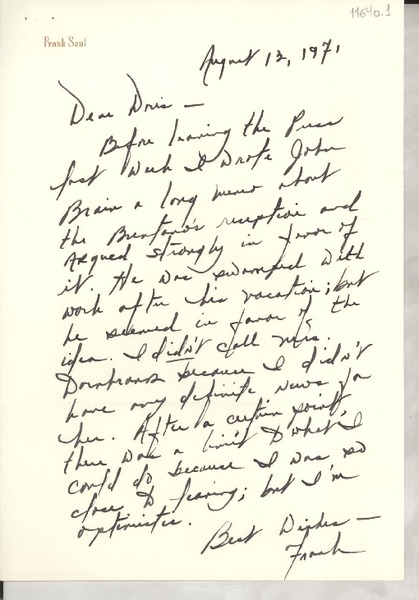 1164o.1
Frank Soul
August 12, 1971
Dear Doris —
Before leaving the Press
last week I wrote John
Brain a long memo about
the Brentano's reception and
argued strongly in favor of
it. He was swamped with
work after his vacation; but
he seemed in favor of the
idea. I didn't call Mrs.
because I didn't
have any definite news for
her. After a certain point
there was a limit to what I
could do because I was so
close to leaving; but I'm
optimistic.
Best Wishes —
Frank